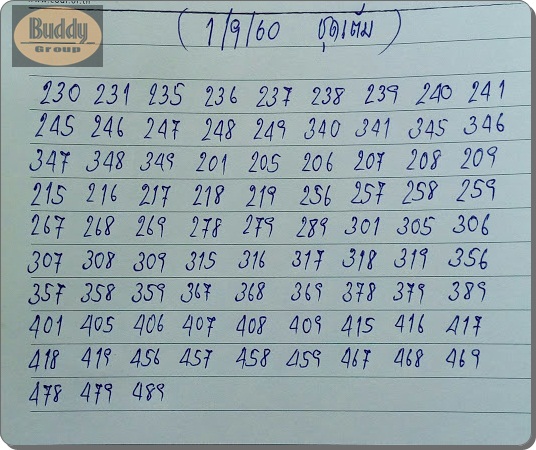 Buddy
Group
( 1/9/60 ชุดเต็ม )
230 231 235 236 237 238 239 240 241
245 246 247 248 249 340 341 345 346
347 348 349 201 205 206 207 208 209
215 216 217 218 219 256 257 258 259
267 268 269 278 279 289 301 305 306
307 308 309 315 316 317 318 319 356
357 358 359 367 368 369 378 379 389
401 405 406 407 408 409 415 416 417
418 419 456 457 458 459 467 468 469
478 479 489